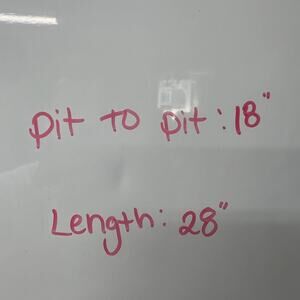 pit to pit: 18"
Length: 28"